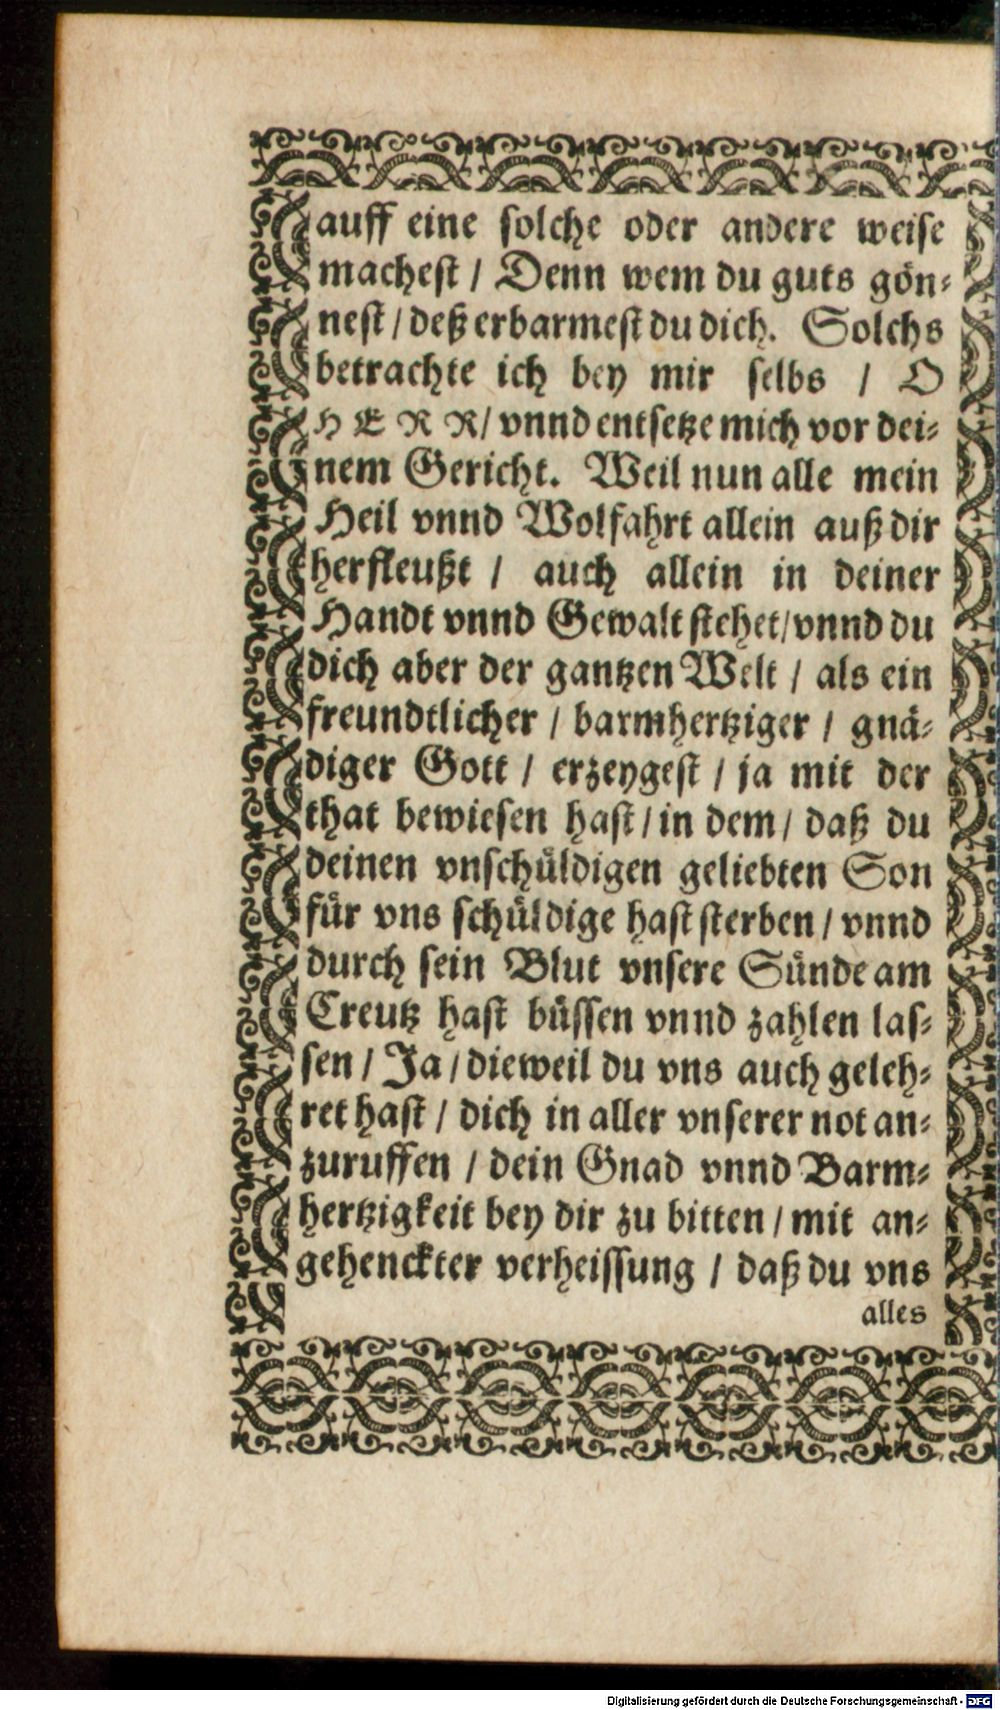 auff eine solche oder andere weise
machest / Denn wem du guts gön-
nest / deß erbarmest du dich. Solchs
betrachte ich bey mir selbs / O
HERR / vnnd entsetze mich vor dei-
nem Gericht. Weil nun alle mein
Heil vnnd Wolfahrt allein auß dir
herfleußt / auch allein in deiner
Handt vnnd Gewalt stehet / vnnd du
dich aber der gantzen Welt / als ein
freundtlicher / barmhertziger / gnä-
diger Gott / erzeygest / ja mit der
that bewiesen hast / in dem / daß du
deinen vnschüldigen geliebten Son
für vns schüldige hast sterben / vnnd
durch sein Blut vnsere Sünde am
Creutz hast büssen vnnd zahlen las-
sen / Ja / dieweil du vns auch geleh-
ret hast / dich in aller vnserer not an-
zuruffen / dein Gnad vnnd Barm-
hertzigkeit bey dir zu bitten / mit an-
gehenckter verheissung / daß du vns
alles
Digitalisierung gefördert durch die Deutsche Forschungsgemeinschaft - DFG